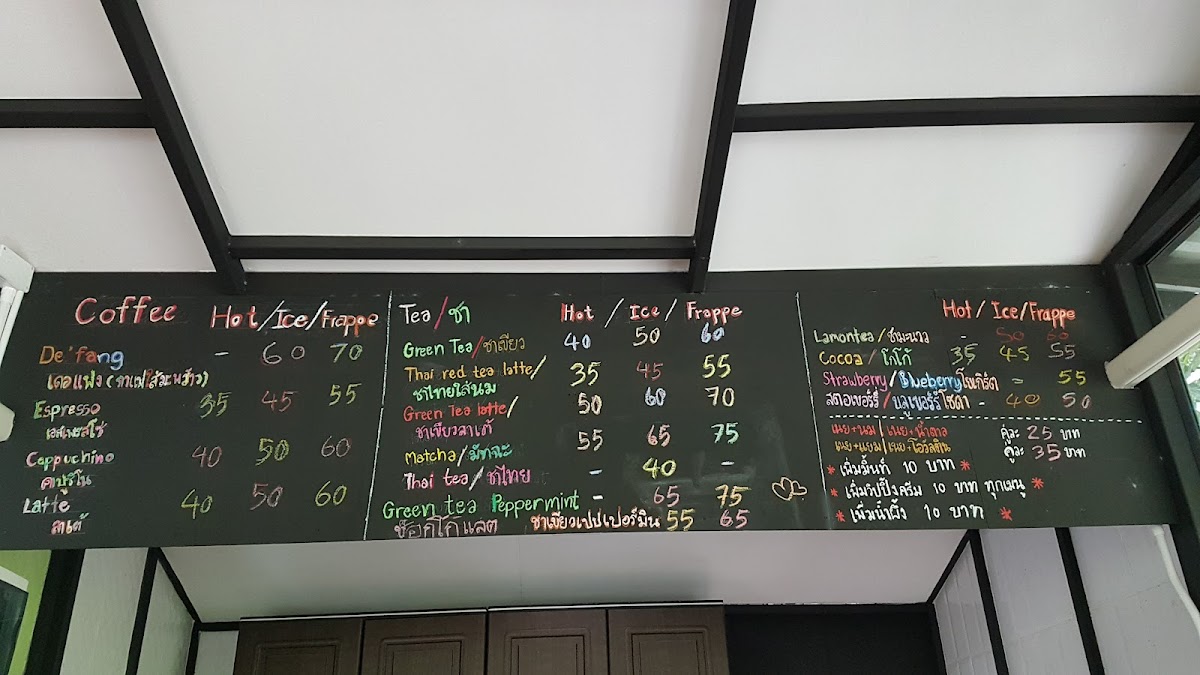 Coffee Hot/Ice/Frappe
De'fang - 60 70
เดอแฟง (กาแฟใส่มะพร้าว)
Espresso 35 45 55
เอสเพรสโซ่
Cappuchino 40 50 60
คาปูชิโน
Latte 40 50 60
ลาเต้
Tea/ชา Hot / Ice / Frappe
Green Tea/ชาเขียว 40 50 60
Thai red tea latte/ 35 45 55
ชาไทยใส่นม
Green Tea latte/ 50 60 70
ชาเขียวลาเต้
Matcha/มัทฉะ 55 65 75
Thai tea/ชาไทย - 40 -
Green tea Peppermint - 65 75
ช๊อกโกแลต ชาเขียวเปปเปอร์มิน 55 65
Hot/Ice/Frappe
Lamontea/ชามะนาว - 50 60
Cocoa/โกโก้ 35 45 55
Strawberry/Blueberry โยเกิร์ต - 55
สตอเบอร์รี่/บลูเบอร์รี่ โซดา - 40 50
เนย+นม/เนย+น้ำตาล คู่ละ 25 บาท
เนย+แยม/เนย+โอวัลติน คู่ละ 35 บาท
* เพิ่มมิ้นท์ 10 บาท *
* เพิ่มวิปปิ้งครีม 10 บาท ทุกเมนู *
* เพิ่มน้ำผึ้ง 10 บาท *